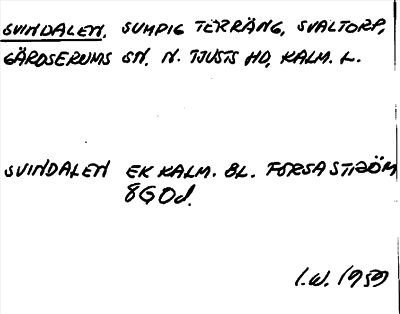 SVINDALEN. SUMPIG TERRÄNG, SVALTORP,
GÄRDSERUMS SN. N. TJUSTS HD, KALM. L.
SVINDALEN EK KALM. BL. FORSASTRÖM
8G Od.
I.W. 1959